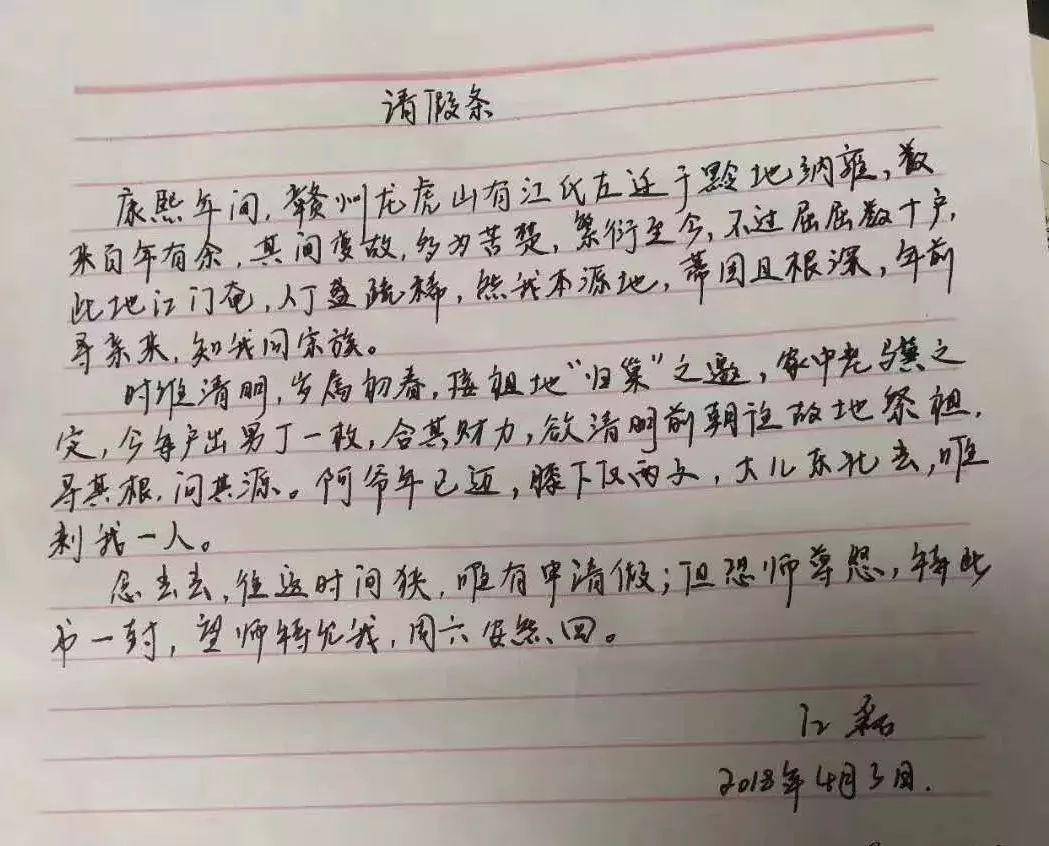 请假条
康熙年间,赣州龙虎山有江氏左迁于黔地纳雍,数
来百年有余,其间变故,多为苦楚,繁衍至今,不过屈屈数十户,
此地江门奄,人丁益疏稀,然我本源地,蒂固且根深,年前
寻亲来,知我同宗族。
时维清明,岁属初春,接祖地“归巢”之邀,家中老骥之
定,今每户出男丁一枚,合其财力,欲清明前朝往故地祭祖,
寻其根,问其源。阿爷年已迈,膝下仅两女,大儿东北去,唯
剩我一人。
念去去,往返时间狭,唯有申请假;但恐师尊怒,特此
书一封,望师特允我,周六安然回。
江磊
2018年4月3日.